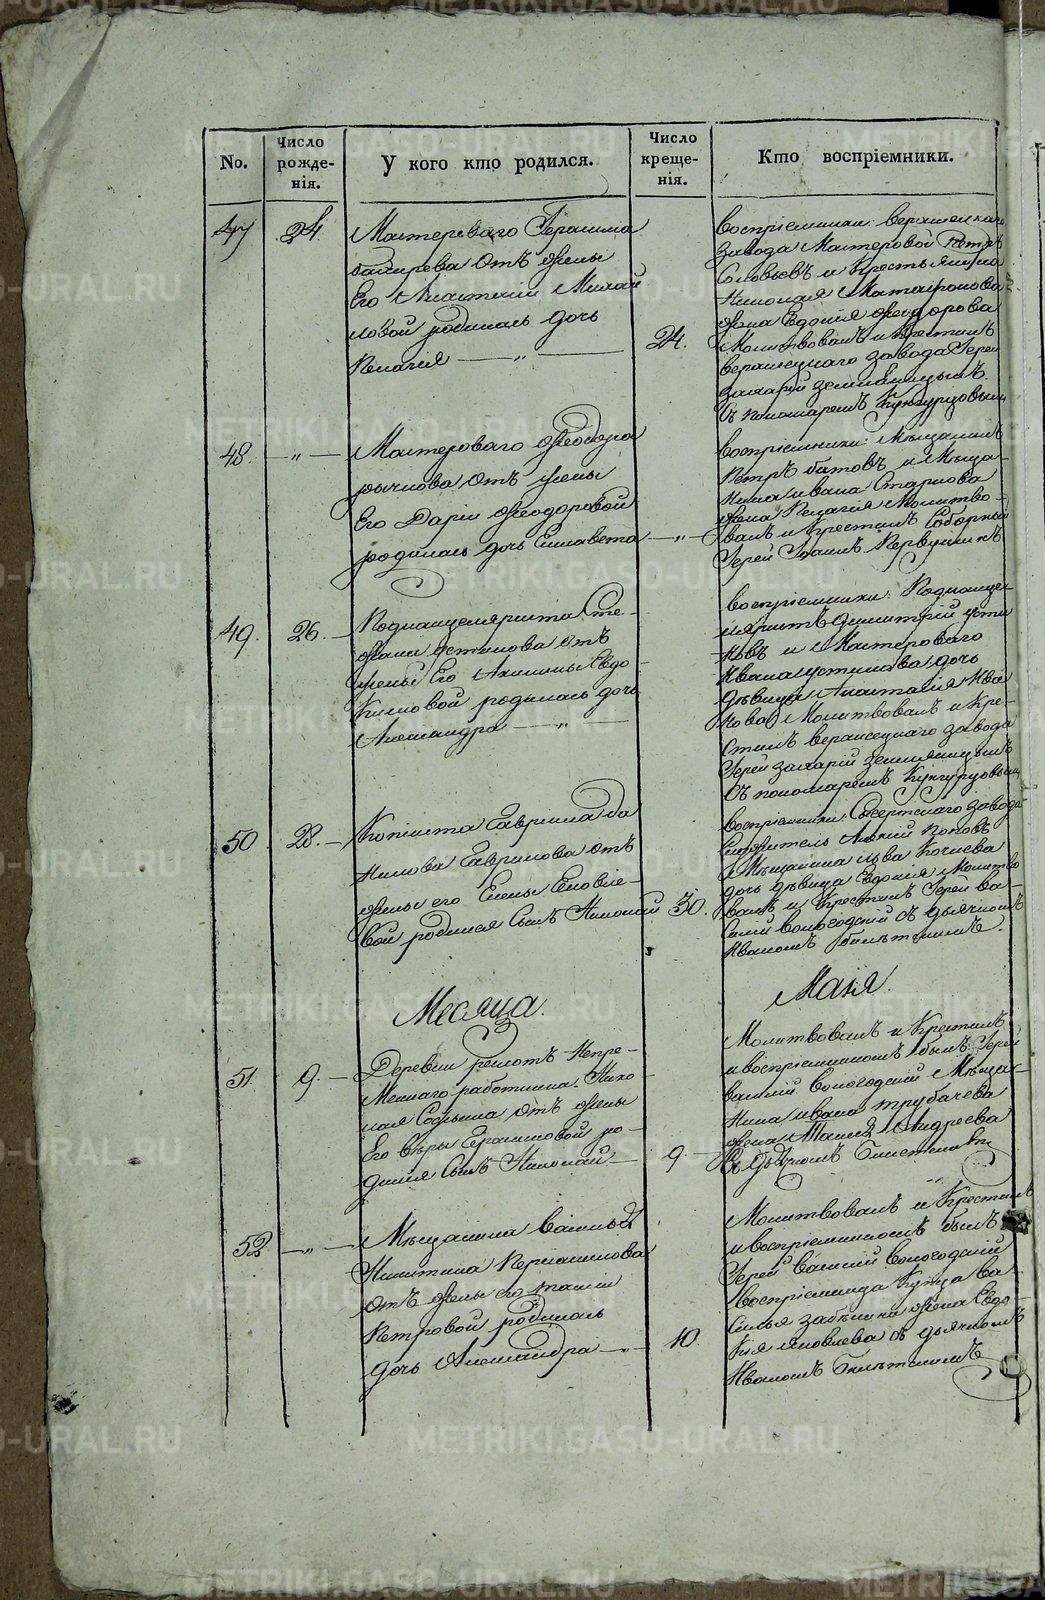 No.
Число рожде- нія.
У кого кто родился.
Число креще- нія.
Кто воспріемники.
47
24.
Мастероваго Герасима
его Анастасіи Михай
ловой родилась дочь
Пелагія — „ —
24.
Воспріемники: Верхисецкаго
завода Мастеровой Петръ
Соловьевъ и Крестьянина
Николая
жена Евдокія Феодорова
Молитвовалъ и Крестилъ
Верхисецкаго завода Іерей
Захарій Земляницынъ
съ пономаремъ Кунгурцовымъ
48.
— „ —
Мастероваго Феодора
рычкова отъ жены
Его Даріи Феодоровой
родилась дочь Елисавета
— „ —
Воспріемники: Мѣщанинъ
Петръ батовъ и Мѣща-
нина ивана Старкова
жена Пелагія Молитво-
валъ и Крестилъ Соборный
Іерей Іоаннъ Первушинъ
49.
26. —
Подканцеляриста Сте-
фана устинова отъ
жены Его Акилины Евдо-
кимовой родилась дочь
Александра — „ —
Воспріемники: Подканцел
яристъ Димитрій усти
новъ и Мастероваго
Ивана устинова дочь
дѣвица Анастасія Ива
нова Молитвовалъ и Кре-
стилъ верхисецкаго завода
Іерей захарій земляницынъ
съ пономаремъ Кунгурцовымъ
50
28. —
Копіиста Гавриила да
нилова Гаврилова отъ
жены его Елены
вой родился Сынъ Николай
30.
Воспріемники: Сысертскаго завода
Поповъ
и Мѣщанина льва Кочнева
дочь дѣвица Евдокія Молитво
валъ и Крестилъ Іерей ва-
силій вологодскій съ дьячкомъ
Иваномъ
Месяца.
Маія.
51.
9. —
Деревни решотъ Непре-
меннаго работника. Нико
лая отъ жены
Его вѣры Герасимовой ро-
дился Сынъ Николай —
9 —
Молитвовалъ и Крестилъ
и воспріемникомъ былъ: Іерей
василій вологодскій Мѣщан-
нина ивана трубачева
жена Андреева
съ дьячкомъ
52
— „ —
Мѣщанина василья
Никитина
отъ жены его
Петровой родилась
дочь Александра — „ —
10.
Молитвовалъ и Крестилъ
и воспріемникомъ былъ
Іерей василій вологодскій
воспріемница Купца ва-
силья жена Евдо-
кія яковлева съ дьячкомъ
Иваномъ
METRIKI.GASO-URAL.RU